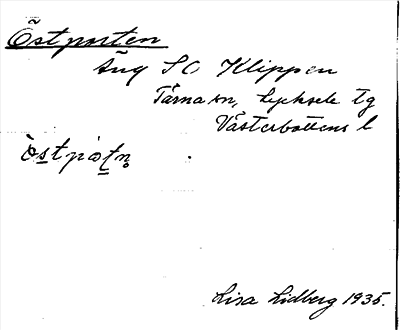 Östporten
äng SO Klippen
Tärna sn, Lycksele tg
Västerbottens l
Lisa Lidberg 1935.